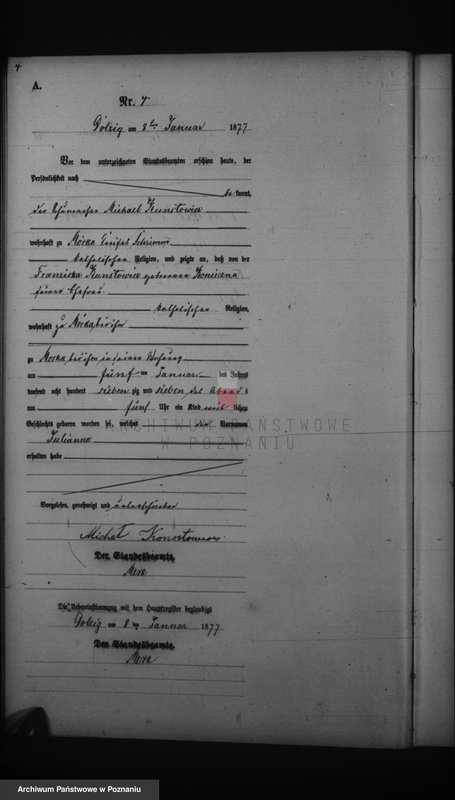 4
A.
Nr. 4
Dolzig am 8ten Januar 1877
Vor dem unterzeichneten Standesbeamten erschien heute, der
Persönlichkeit nach
be kannt,
der Schumacher Michael Kunstowicz
wohnhaft zu Mórka Kreises Schrimm
katholischer Religion, und zeigte an, daß von der
Franziska Kunstowicz geborenen
seiner Ehefrau
katholischer Religion,
wohnhaft zu Mórka, bei ihm
zu Morka, bei ihm in seiner Wohnung
am fünf ten Januar des Jahres
tausend acht hundert sieben zig und sieben des Abends
um fünf Uhr ein Kind weib lichen
Geschlechts geboren worden sei, welches den Vornamen
Julianna
erhalten habe
ARCHIWUM PAŃSTWOWE
W POZNANIU
Vorgelesen, genehmigt und unterschrieben
Michał
Der Standesbeamte.
Die Uebereinstimmung mit dem Hauptregister beglaubigt
Dolzig am 8 ten Januar 1877
Der Standesbeamte.
Archiwum Państwowe w Poznaniu